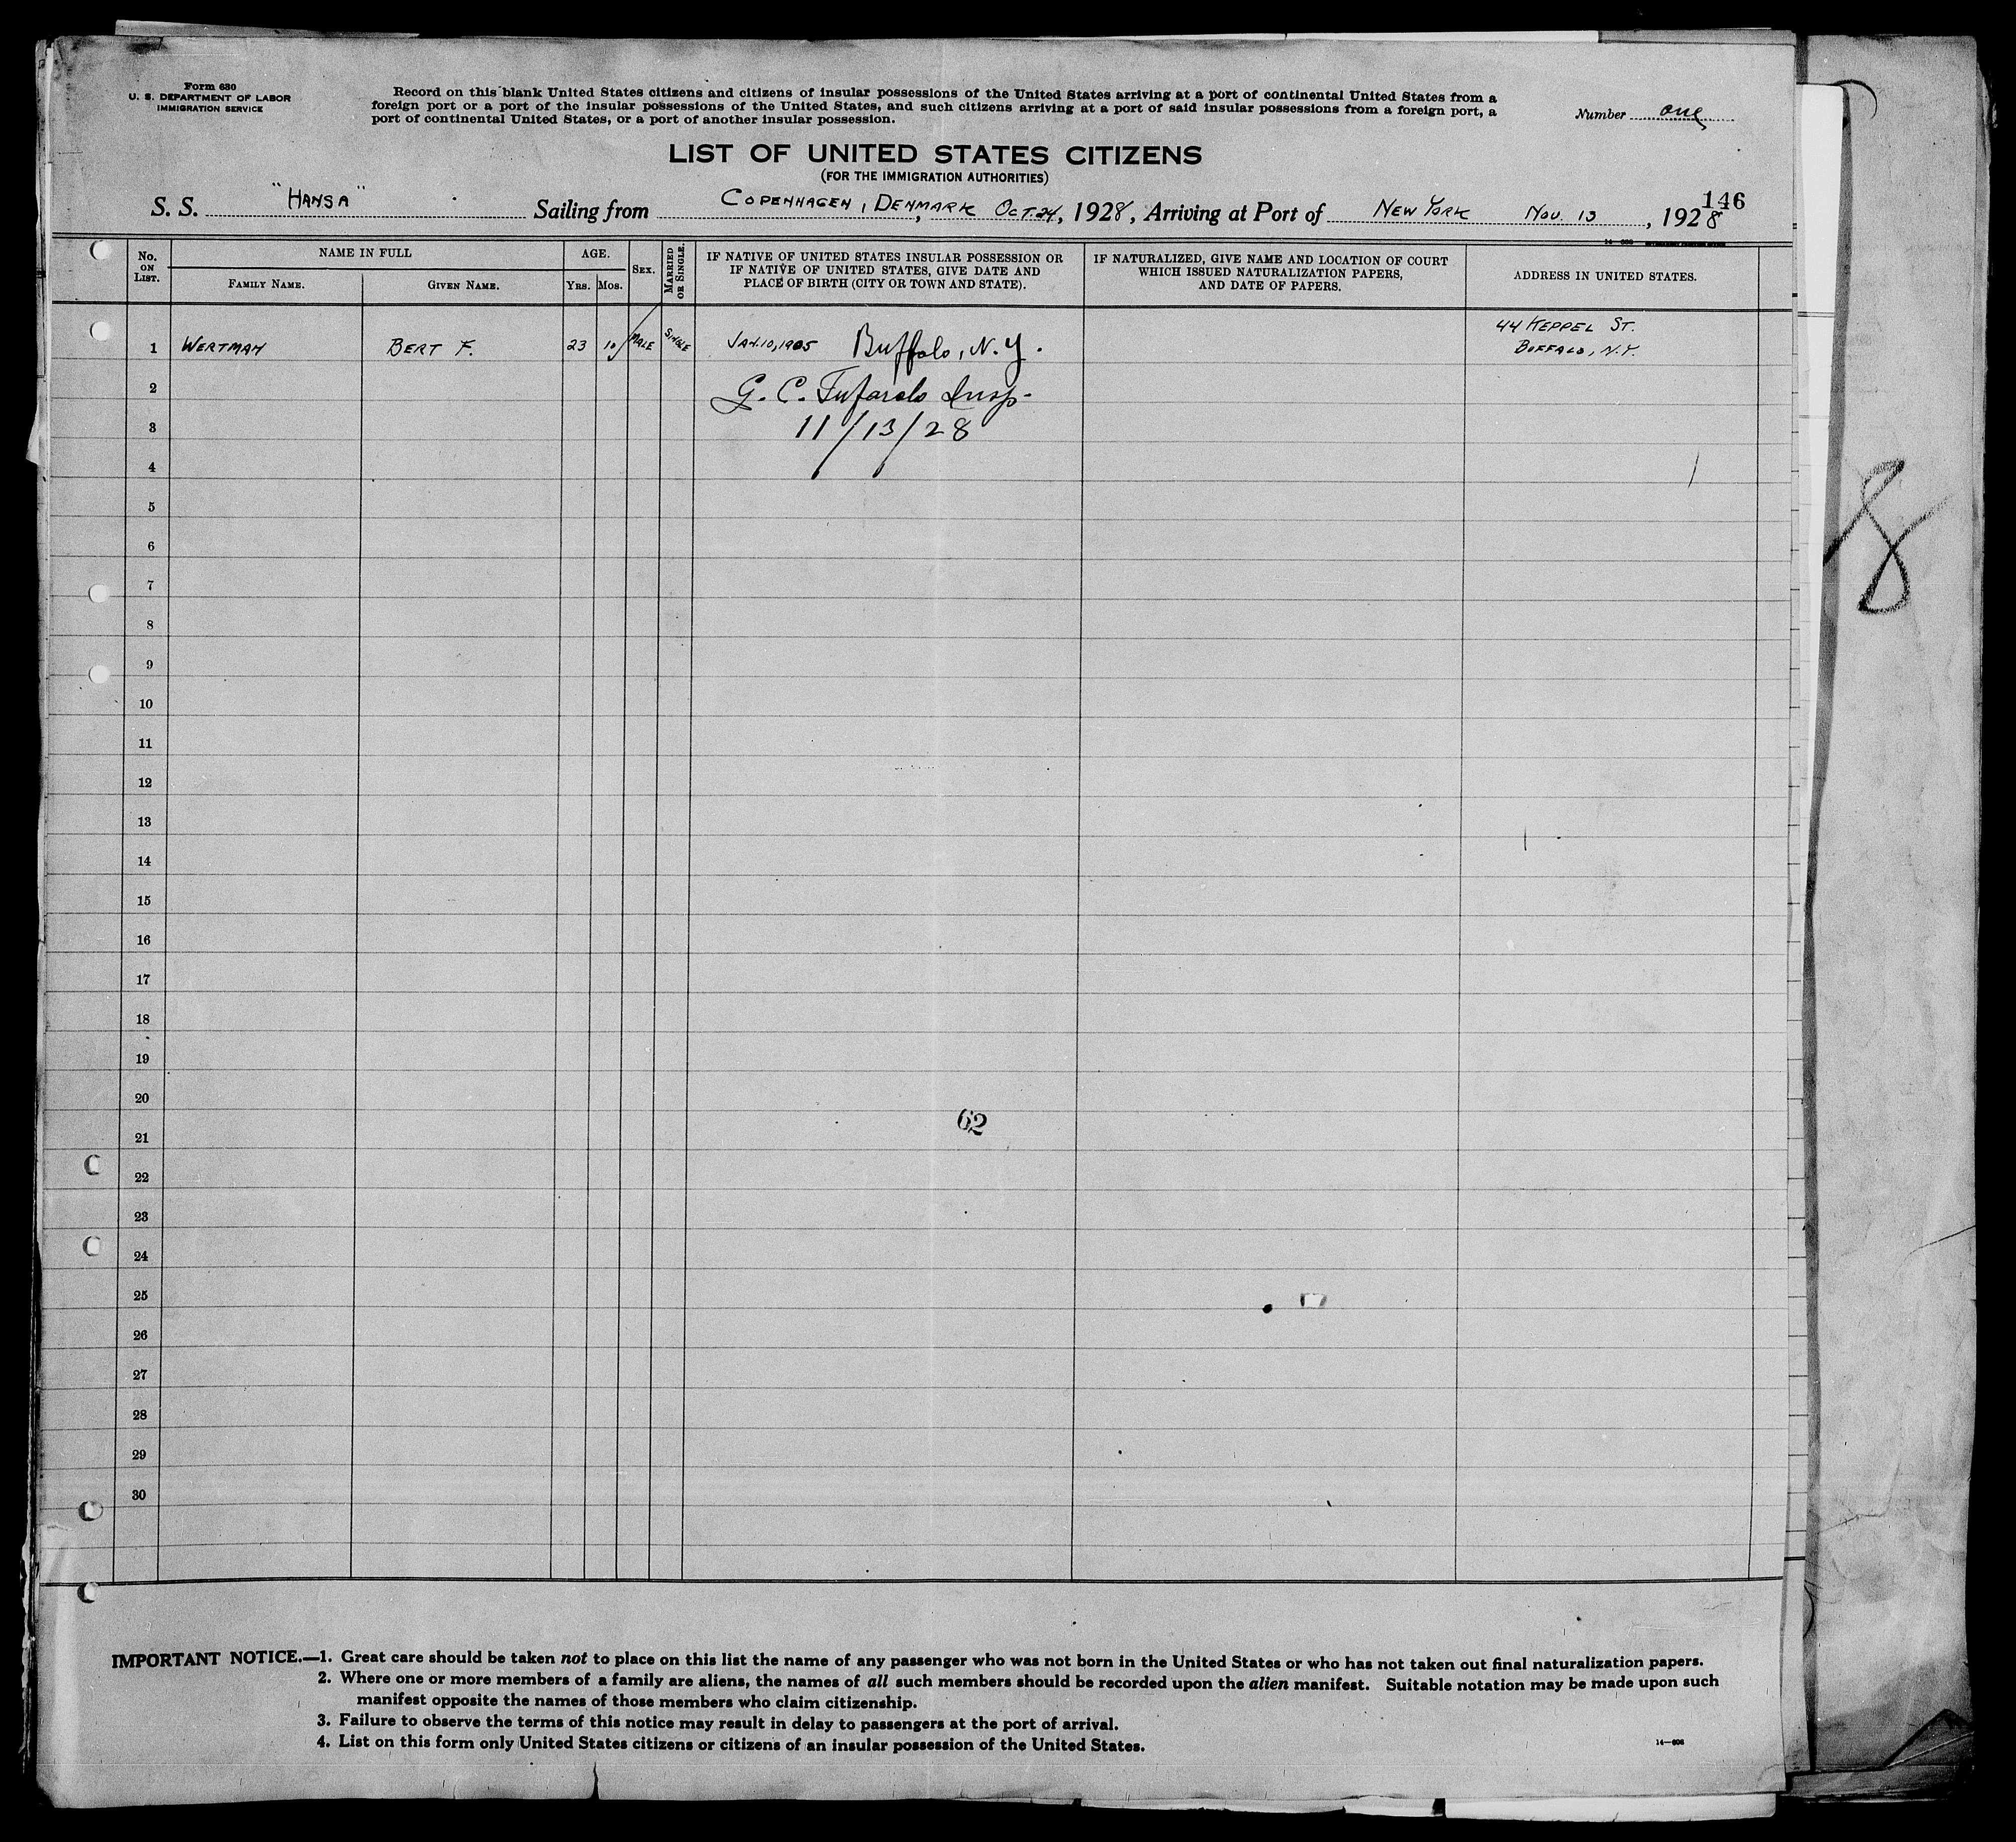 Form 630
U. S. DEPARTMENT OF LABOR
IMMIGRATION SERVICE
Record on this blank United States citizens and citizens of insular possessions of the United States arriving at a port of continental United States from a
foreign port or a port of the insular possessions of the United States, and such citizens arriving at a port of said insular possessions from a foreign port, a
port of continental United States, or a port of another insular possession.
Number one
LIST OF UNITED STATES CITIZENS
(FOR THE IMMIGRATION AUTHORITIES)
146
S. S. "HANSA" Sailing from COPENHAGEN, DENMARK, OCT. 24, 1928, Arriving at Port of NEW YORK NOV. 13, 1928
No. ON LIST.
NAME IN FULL
FAMILY NAME.
GIVEN NAME.
AGE.
YRS.
MOS.
SEX.
MARRIED OR SINGLE.
IF NATIVE OF UNITED STATES INSULAR POSSESSION OR
IF NATIVE OF UNITED STATES, GIVE DATE AND
PLACE OF BIRTH (CITY OR TOWN AND STATE).
IF NATURALIZED, GIVE NAME AND LOCATION OF COURT
WHICH ISSUED NATURALIZATION PAPERS,
AND DATE OF PAPERS.
ADDRESS IN UNITED STATES.
1 WERTMAN BERT F. 23 10 MALE SINGLE JAN. 10, 1905 Buffalo, N.Y. 44 KEPPEL ST.
BUFFALO, N.Y.
2 G. C. Insp.
3 11/13/28
4
5
6
7
8
9
10
11
12
13
14
15
16
17
18
19
20
62
21
22
23
24
25
26
27
28
29
30
8
IMPORTANT NOTICE.—1. Great care should be taken not to place on this list the name of any passenger who was not born in the United States or who has not taken out final naturalization papers.
2. Where one or more members of a family are aliens, the names of all such members should be recorded upon the alien manifest. Suitable notation may be made upon such
manifest opposite the names of those members who claim citizenship.
3. Failure to observe the terms of this notice may result in delay to passengers at the port of arrival.
4. List on this form only United States citizens or citizens of an insular possession of the United States.